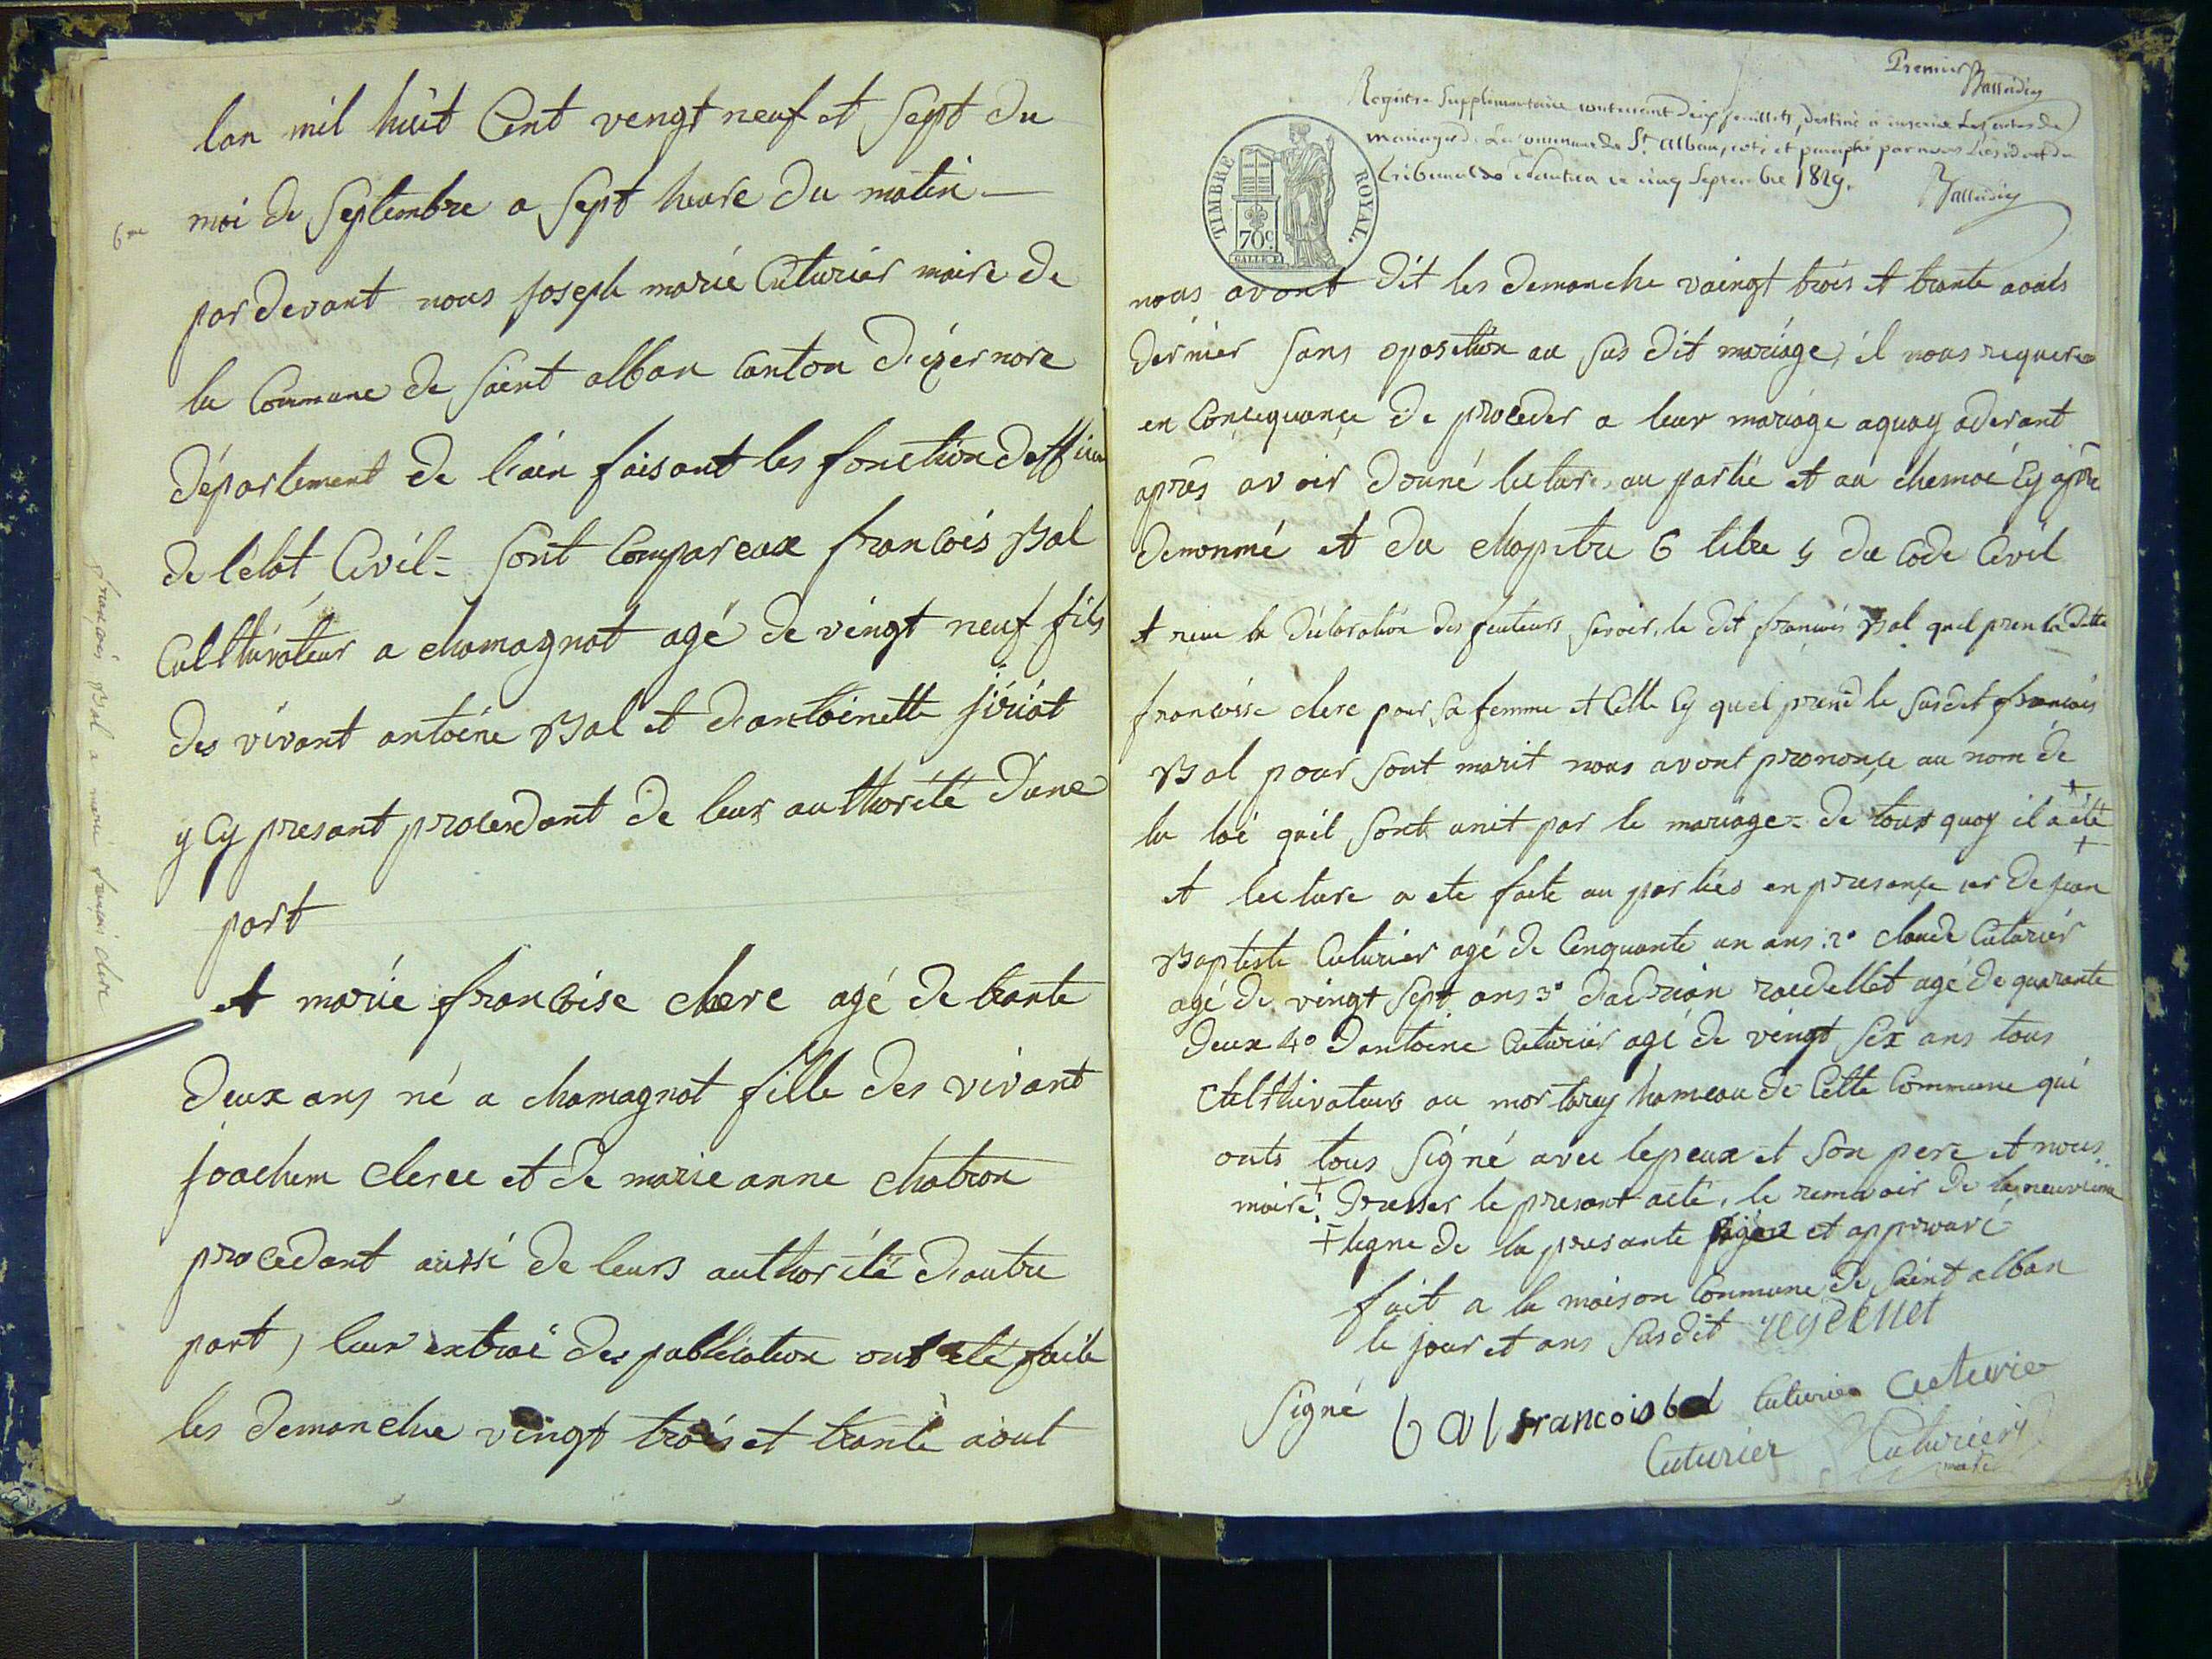 6me
françois Bal a marié françois clerc
lan mil huit Cent vengt neuf et sept du
moi de septembre a sept heure du matin
par devant nous joseph marie Cuturier maire de
la Commune de saint alban canton d'izernore
département de l'ain faisant les fonction d'officier
de l'etat Civil = sont Compareux francois Bal
Culthivateur a chamagnat agé de vingt neuf fils
des vivant antoine Bal et d'antoinette
y Cy presant procerdant de leur authorité d'une
part
et marie francoise clerc agé de trante
deux ans né a chamagnat fille des vivant
joachim clerce et de marie anne chatron
procedant aussi de leurs authorité d'autre
part, leur extrai des publication ont eté faite
les demanche vingt trois et trante aout
Premier Balleidier
Registre supplémentaire contenant deux feuillets, destiné à inscrire les actes de
mariage de la commune de St. alban, coté et paraphé par nous Président du
tribunal de Nantua le cinq Septembre 1829.
Balleidier
TIMBRE ROYAL.
70c.
nous avont dit les demanche vaingt trois et trante aouts
dernier sans oposition au sus dit mariage, il nous requere
en Concequance de proceder a leur mariage aquoy aderant
après avoir donné lecture au partie et au chemoé Cy après
denonmé et du chapitre 6 titre 5 du Code Civil
et recu la déclaration des feuteurs savoir, le dit françois Bal quel pren la ditte
francoisse clerc pour sa femme et Celle Cy quel prend le susdit francois
Bal pour sont marit nous avont prononçe au nom de
la loé quil sont unit par le mariage = de tout quoy il a eté +
et lecture a ete faite au parties en presançe 1er de jean
Baptiste Cuturier agé de Cinquante un ans 2° claude Cuturier
agé de vingt sept ans 3° d'adrian raudellet agé de quarante
deux 4° d'antoine Cuturier agé de vingt six ans tous
Culthivateur au mortarey hameau de Cette Commune qui
onts tous signé avec lepeux et son pere et nous
maire + dresser le presant acte, le remvoir de la neuvieme
+ ligne de la presante page et approuvé
fait a la maison Commune de saint alban
le jour et ans susdit reydellet
signé bal francois bal Cuturier Cuturier
Cuturier Cuturier
maire